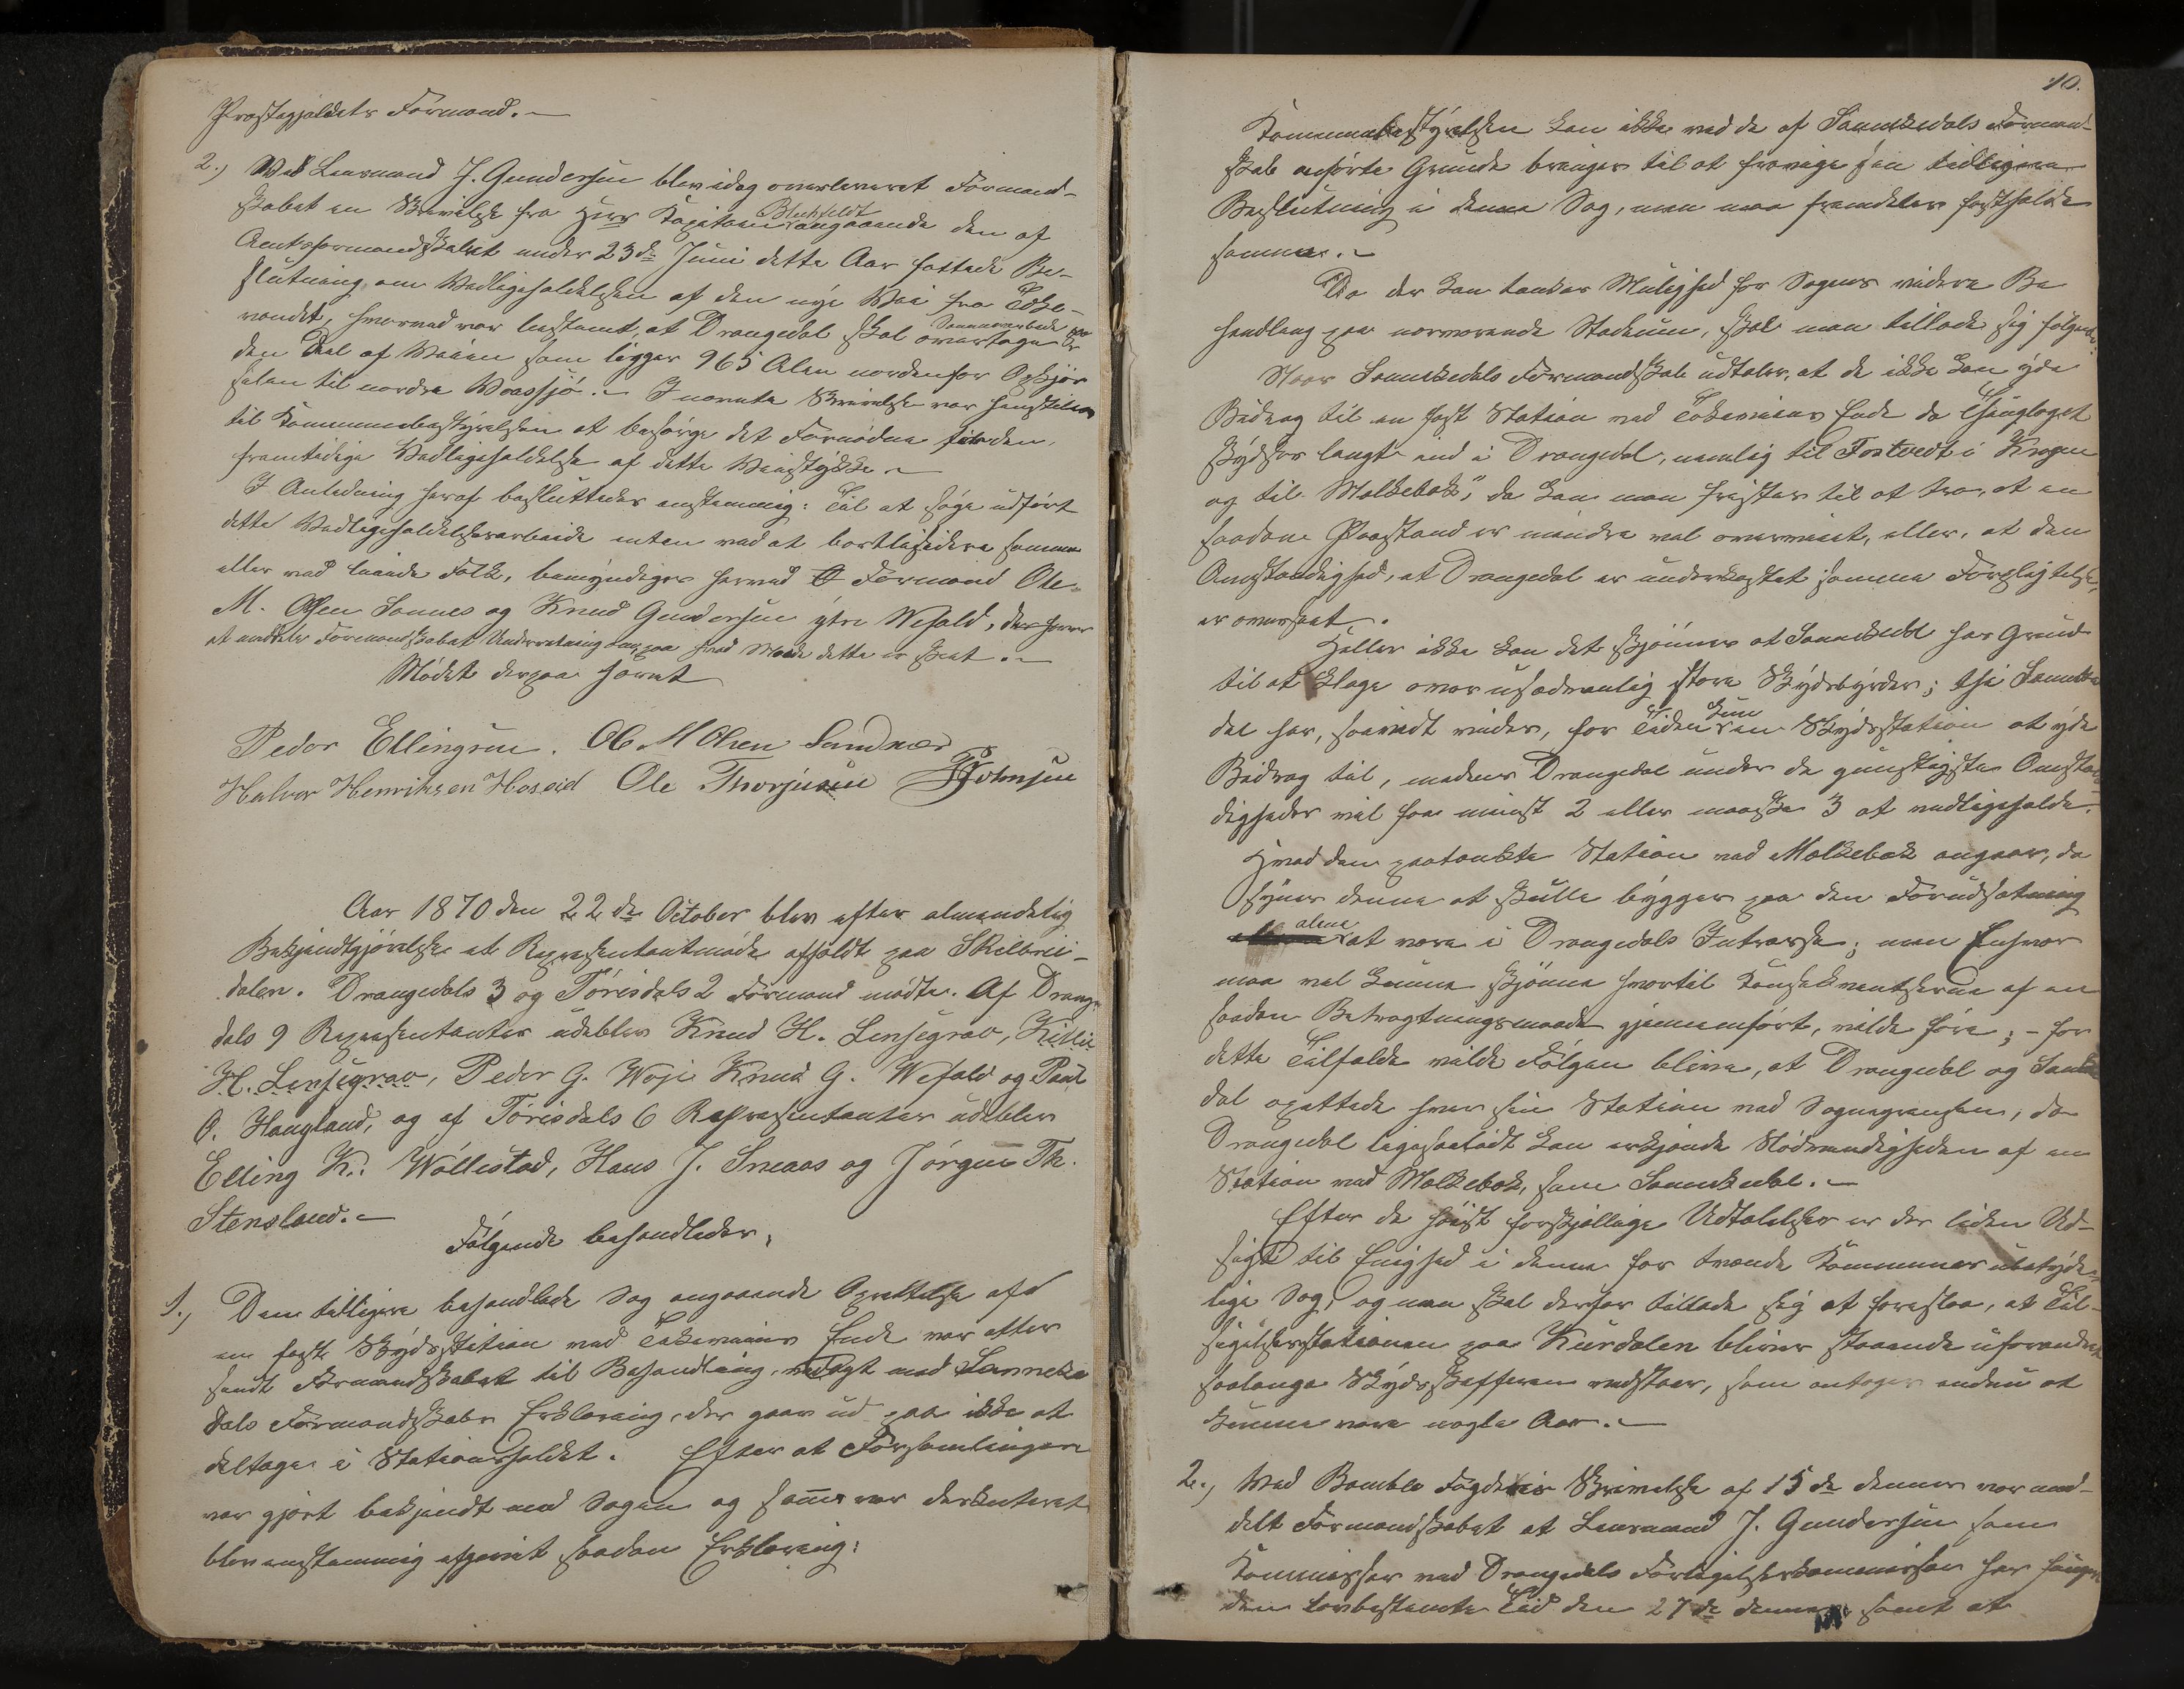 Præstegjældets Formænd. –
2.) Ved Lensmand J. Gundersen blev idag overleveret Formand-
skabet en Skrivelse fra Herr Kapitain Blechfeldt angaaende den af
Amtsformandskabet under 23de Juni dette Aar fattede Be-
slutning om Vedligeholdelsen af den nye Vei fra Toke-
vandet, hvorved var bestemt, at Drangedal skal overtage
den Deel af Veien som ligger 965 Alen nordenfor Opkjør-
selen til nordre Voassjø. – I nævnte Skrivelse var henstillet
til Kommunebestyrelsen at besørge det Fornødne for den
fremtidige Vedligeholdelse af dette Veistykke. –
I Anledning heraf besluttedes enstemmig: Til at søge udført
dette Vedligeholdelsesarbeide enten ved at bortlicitere samme
eller ved leiede Folk, bemyndiges herved Formænd Ole
M. Olsen Sannes og Knud Gundersen ytre Wefald, der haver
at meddele Formandskabet Underretning om, paa hvad Maade dette er skeet. –
Mødet derpaa hævet
Peder Ellingsen. Ole M Olsen Sandnæs
Halvor Henriksen Hoseid Ole Thorjusen Johnsen
Aar 1870 den 22de October blev efter almindelig
Bekjendtgjørelse et Repræsentantmøde afholdt paa Skilbrei-
dalen. Drangedals 3 og Tørisdals 2 Formænd mødte. Af Drange-
dals 9 Repræsentanter udeblev Knud H. Lensegrav, Killie
H. Lensegrav, Peder G. Woje Knud G. Wefald og Paul
O. Haugland, og af Tørisdals 6 Repræsentanter udeblev
Elling K. Wøllestad, Hans J. Sneaas og Jørgen Th.
Stensland. –
Følgende behandledes,
1.) Den tidligere behandlede Sag angaaende Oprettelse af
en fast Skydsstation ved Tokeveiens Ende var atter
sendt Formandskabet til Behandling, vedlagt med Sannike-
dals Formandskabs Erklæring, der gaar ud paa ikke at
deltage i Stationsholdet. Efter at Forsamlingen
var gjort bekjendt med Sagen og samme var diskuteret
blev enstemmig afgivet saadan Erklæring:
10.
Kommunebestyrelsen kan ikke ved de af Sannikedals Formand-
skab anførte Grunde bringes til at fravige sin tidligere
Beslutning i denne Sag, men maa fremdeles fastholde
samme. –
Da der kan tænkes Mulighed for Sagens videre Be
handling paa nærværende Stadium, skal man tillade sig følgende:
Naar Sannikedals Formandskab udtaler, at de ikke kan yde
Bidrag til en fast Station ved Tokeveiens Ende da Thinglaget
skydser langt ind i Drangedal, nemlig til Tostvedt i Krogen
og til Molkebæk, da kan man fristes til at tro, at en
saadan Paastand er mindre vel overveiet, eller, at den
Omstændighed, at Drangedal er underkastet samme Forpligtelse,
er overseet.
Heller ikke kan det skjønnes at Sannikedal har Grund
til at klage over usædvanlig store Skydsbyrder; thi Sannike
dal har, saavidt vides, for Tiden kun en Skydsstation at yde
Bidrag til, medens Drangedal under de gunstigste Omstæn
digheder vil faa mindst 2 eller maaske 3 at vedligeholde.
Hvad den paatænkte Station ved Molkebæk angaar, da
synes denne at skulle bygges paa den Forudsætning
alene at være i Drangedals Interesse; men Enhver
maa vel kunne skjønne hvortil Konsekventserne af en
saadan Betragtningsmaade gjennemført, vilde føre; – for
dette Tilfælde vilde Følgen blive, at Drangedal og Sannike
dal oprettede hver sin Station ved Sognegrændsen, da
Drangedal ligesaalidt kan erkjende Nødvendigheden af en
Station ved Molkebæk, som Sannikedal. –
Efter de høist forskjellige Udtalelser er der liden Ud-
sigt til Enighed i denne for tvende Kommuner ubetyde-
lige Sag, og man skal derfor tillade sig at foreslaa, at Til-
sigelsesstationen paa Kurdalen bliver staaende uforandret
saalænge Skydsskafferen vedstaar, som antages endnu at
kunne være nogle Aar. –
2.) Ved Bamble Fogderis Skrivelse af 15de dennes var med-
delt Formandskabet at Lensmand J. Gundersen som
Kommissær ved Drangedals Forligelseskommission har fungeret
den lovbestemte Tid den 27de dennes samt at